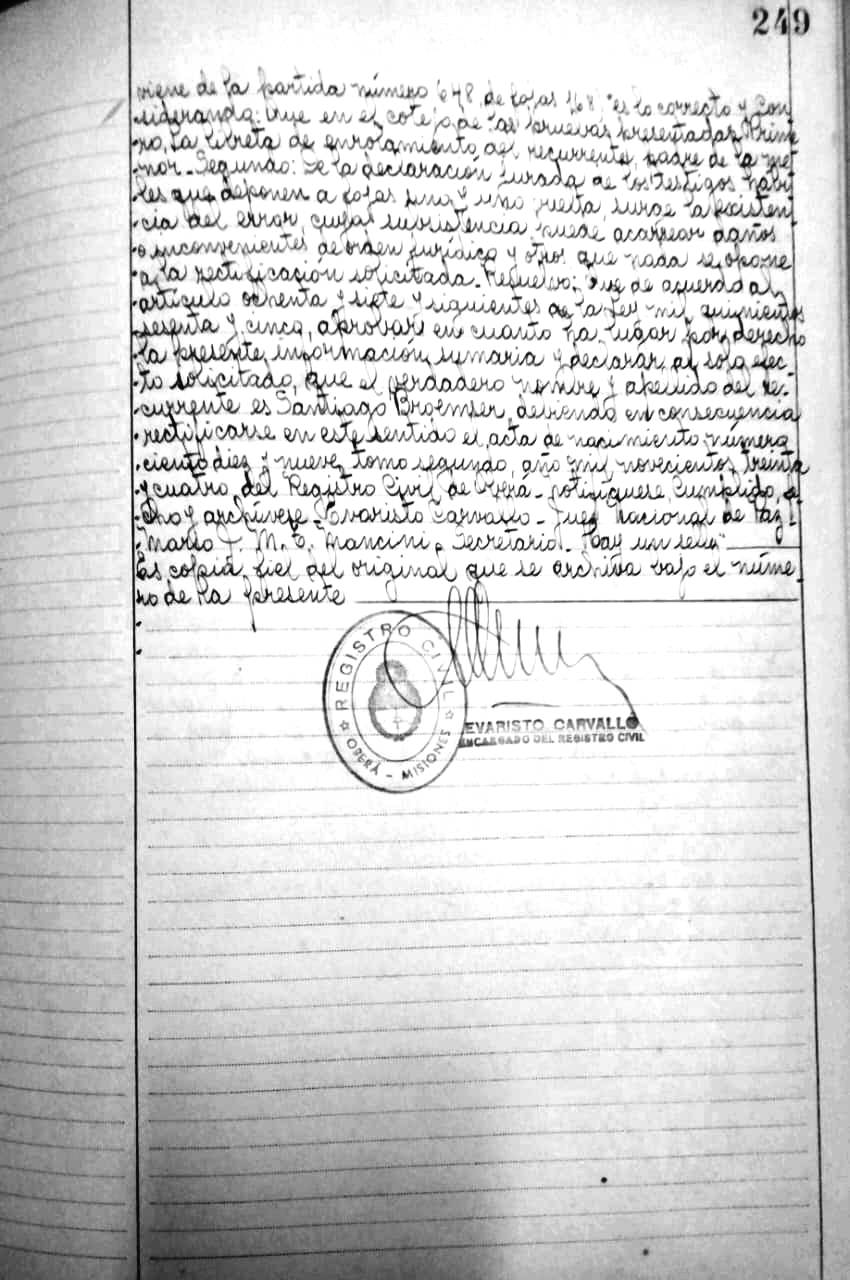 249
viene de la partida número 648, de fojas 168, "es lo correcto y Con
siderando: Que en el cotejo de las pruebas presentadas Prime
ro, la libreta de enrolamiento del recurrente, padre de la me
nor. Segundo: De la declaración jurada de los testigos hábi
les que deponen a fojas una y uno vuelta, surge la existen
cia del error, cuya subsistencia puede acarrear daños
o inconvenientes de orden jurídico y otros que nada se opone
a la rectificación solicitada. Resuelvo: Que de acuerdo al
artículo ochenta y siete y siguientes de la Ley mil quinientos
sesenta y cinco, aprobar en cuanto ha lugar por derecho
la presente información sumaria y declarar al solo efec-
to solicitado, que el verdadero nombre y apellido del re-
currente es Santiago Broemser, debiendo en consecuencia
rectificarse en este sentido el acta de nacimiento número
ciento diez y nueve, tomo segundo, año mil novecientos treinta
y cuatro del Registro Civil de Oberá. Notifíquese, Cumplido,
y archívese. Evaristo Carvallo. Juez Nacional de Paz.
M. E. Mancini. Secretario. Hay un sello"
Es copia fiel del original que se archiva bajo el núme-
ro de la presente
REGISTRO CIVIL
OBERÁ - MISIONES
EVARISTO CARVALLO
ENCARGADO DEL REGISTRO CIVIL